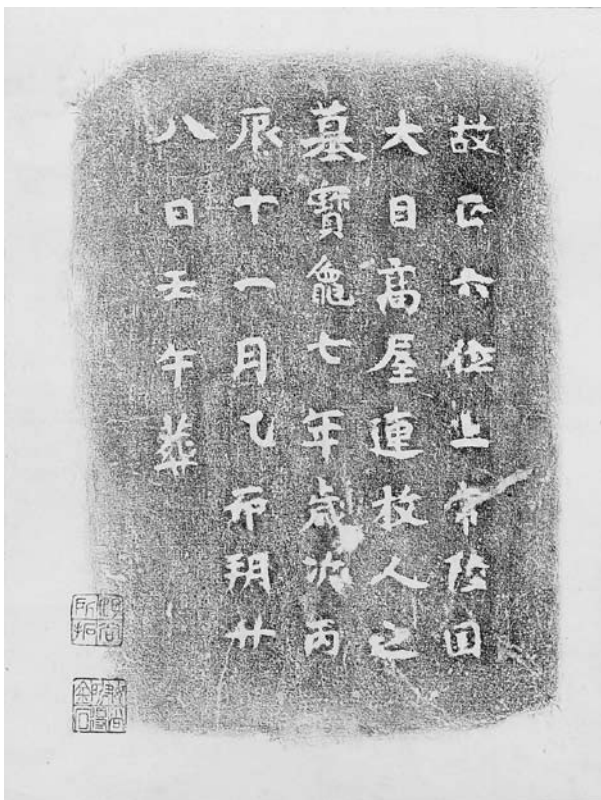 故正六位上常陸国
大目髙屋連枚人之
墓寶龜七年歳次丙
辰十一月乙卯朔廿
八日壬午葬